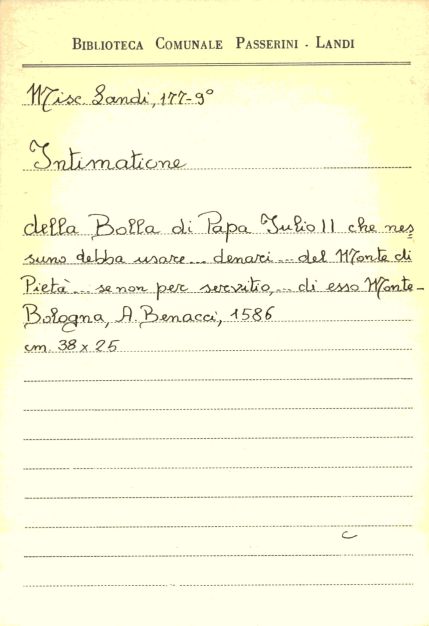 BIBLIOTECA COMUNALE PASSERINI - LANDI
Misc. Landi, 177-9°
Intimatione
della Bolla di Papa Julio II che nes=
suno debba usare... denari... del Monte di
Pietà... se non per servitio,... di esso Monte-
Bologna, A. Benacci, 1586
cm. 38 x 25
c